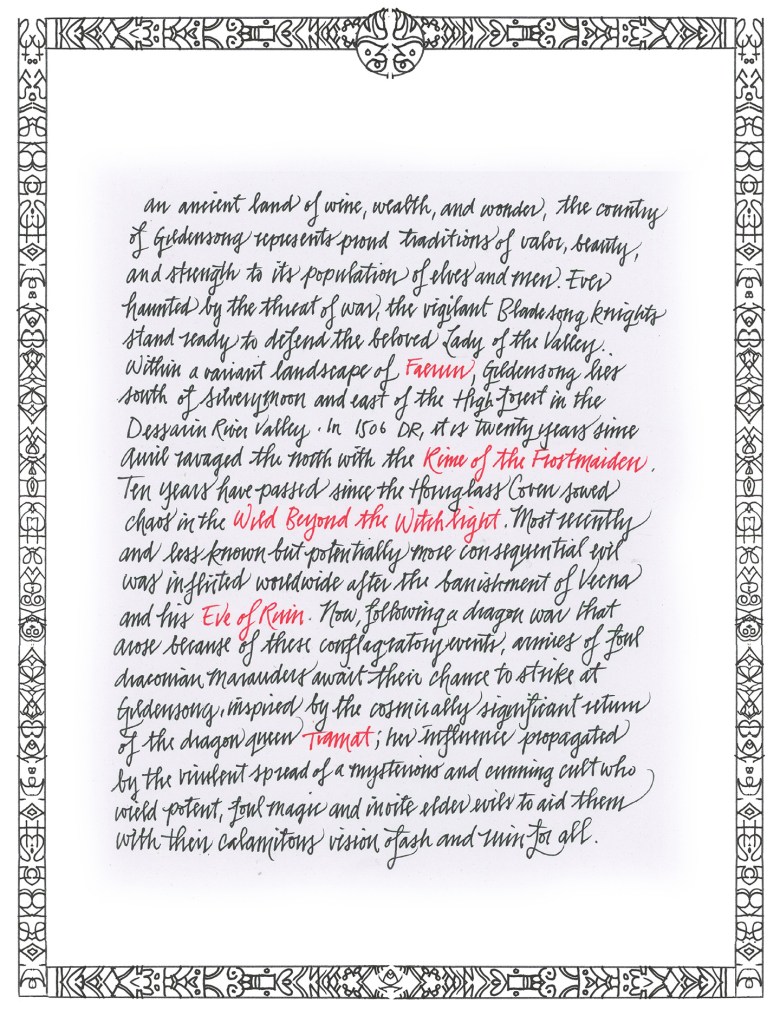 an ancient land of wine, wealth, and wonder, the country
of Gildensong represents proud traditions of valor, beauty,
and strength to its population of elves and men. Ever
haunted by the threat of war, the vigilant Bladesong knights
stand ready to defend the beloved Lady of the Valley.
Within a variant landscape of Faerun, Gildensong lies
south of Silverymoon and east of the High Forest in the
Dessarin River Valley. In 1506 DR, it is twenty years since
Auril ravaged the north with the Rime of the Frostmaiden.
Ten years have passed since the Hourglass Coven sowed
chaos in the Wild Beyond the Witchlight. Most recently
and less known but potentially more consequential evil
was inflicted worldwide after the banishment of Vecna
and his Eve of Ruin. Now, following a dragon war that
arose because of these conflagratory events, armies of foul
draconian marauders await their chance to strike at
Gildensong, inspired by the cosmically significant return
of the dragon queen Tiamat; her influence propagated
by the virulent spread of a mysterious and cunning cult who
wield potent, foul magic and invite elder evils to aid them
with their calamitous vision of ash and ruin for all.